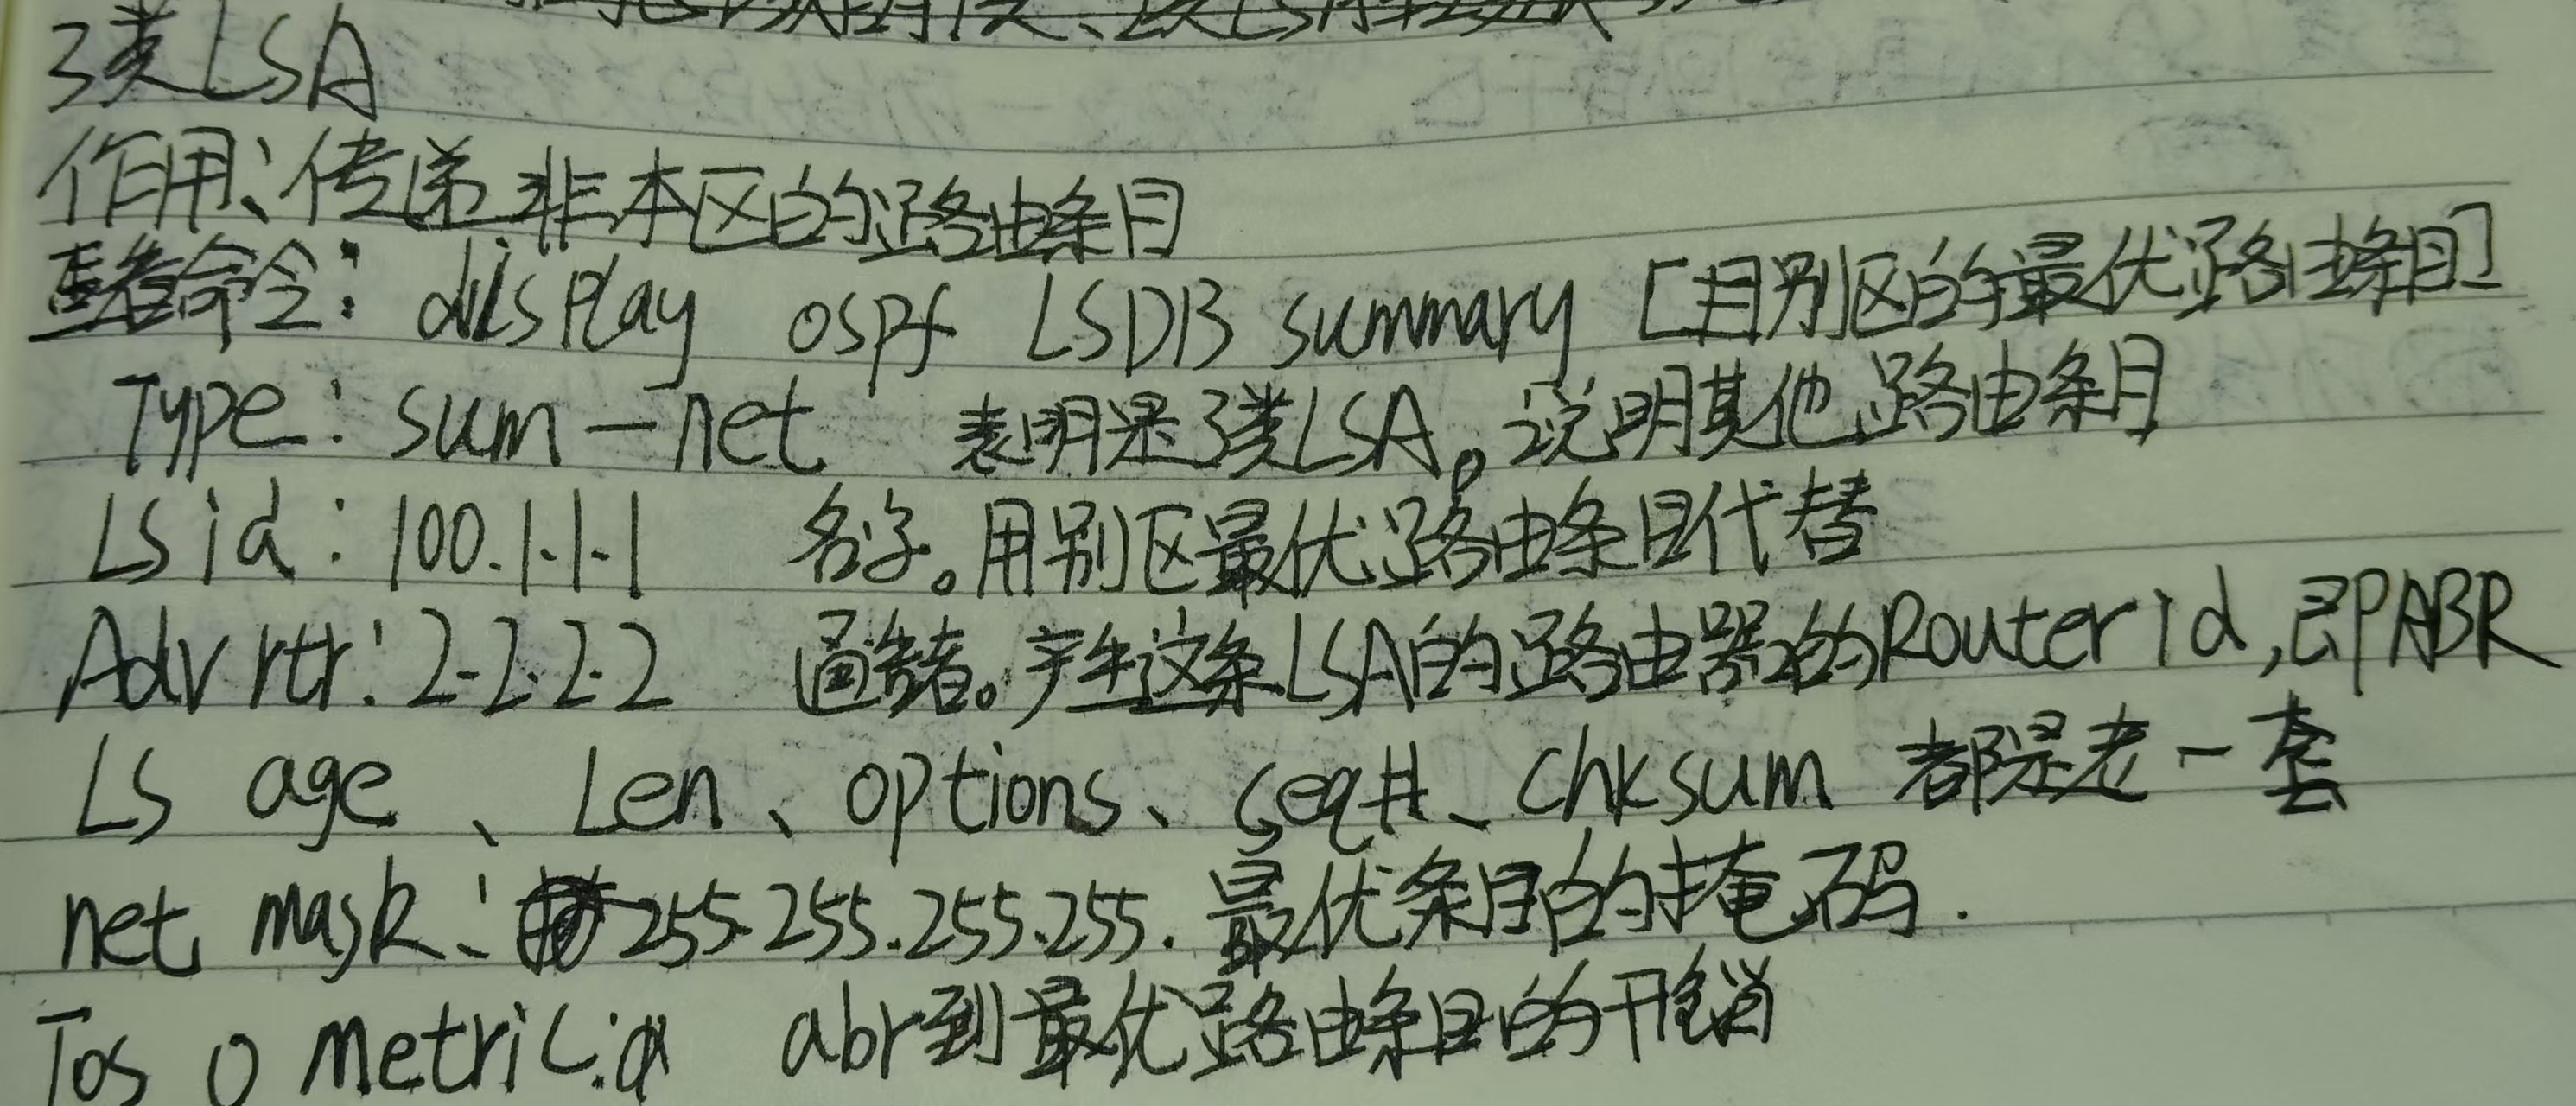 3类LSA
作用、传递非本区的路由条目
查看命令：display ospf LSDB summary [用别区的最优路由条目]
Type：sum-net 表明是3类LSA。说明其他路由条目
LS id：100.1.1.1 名字。用别区最优路由条目代替
Adv rtr：2.2.2.2 通告者。产生这条LSA的路由器的Router id，即ABR
LS age、Len、options、seq#、chksum 都是老一套
net mask：255.255.255.255. 最优条目的掩码.
Tos 0 metric： abr到最优路由条目的开销